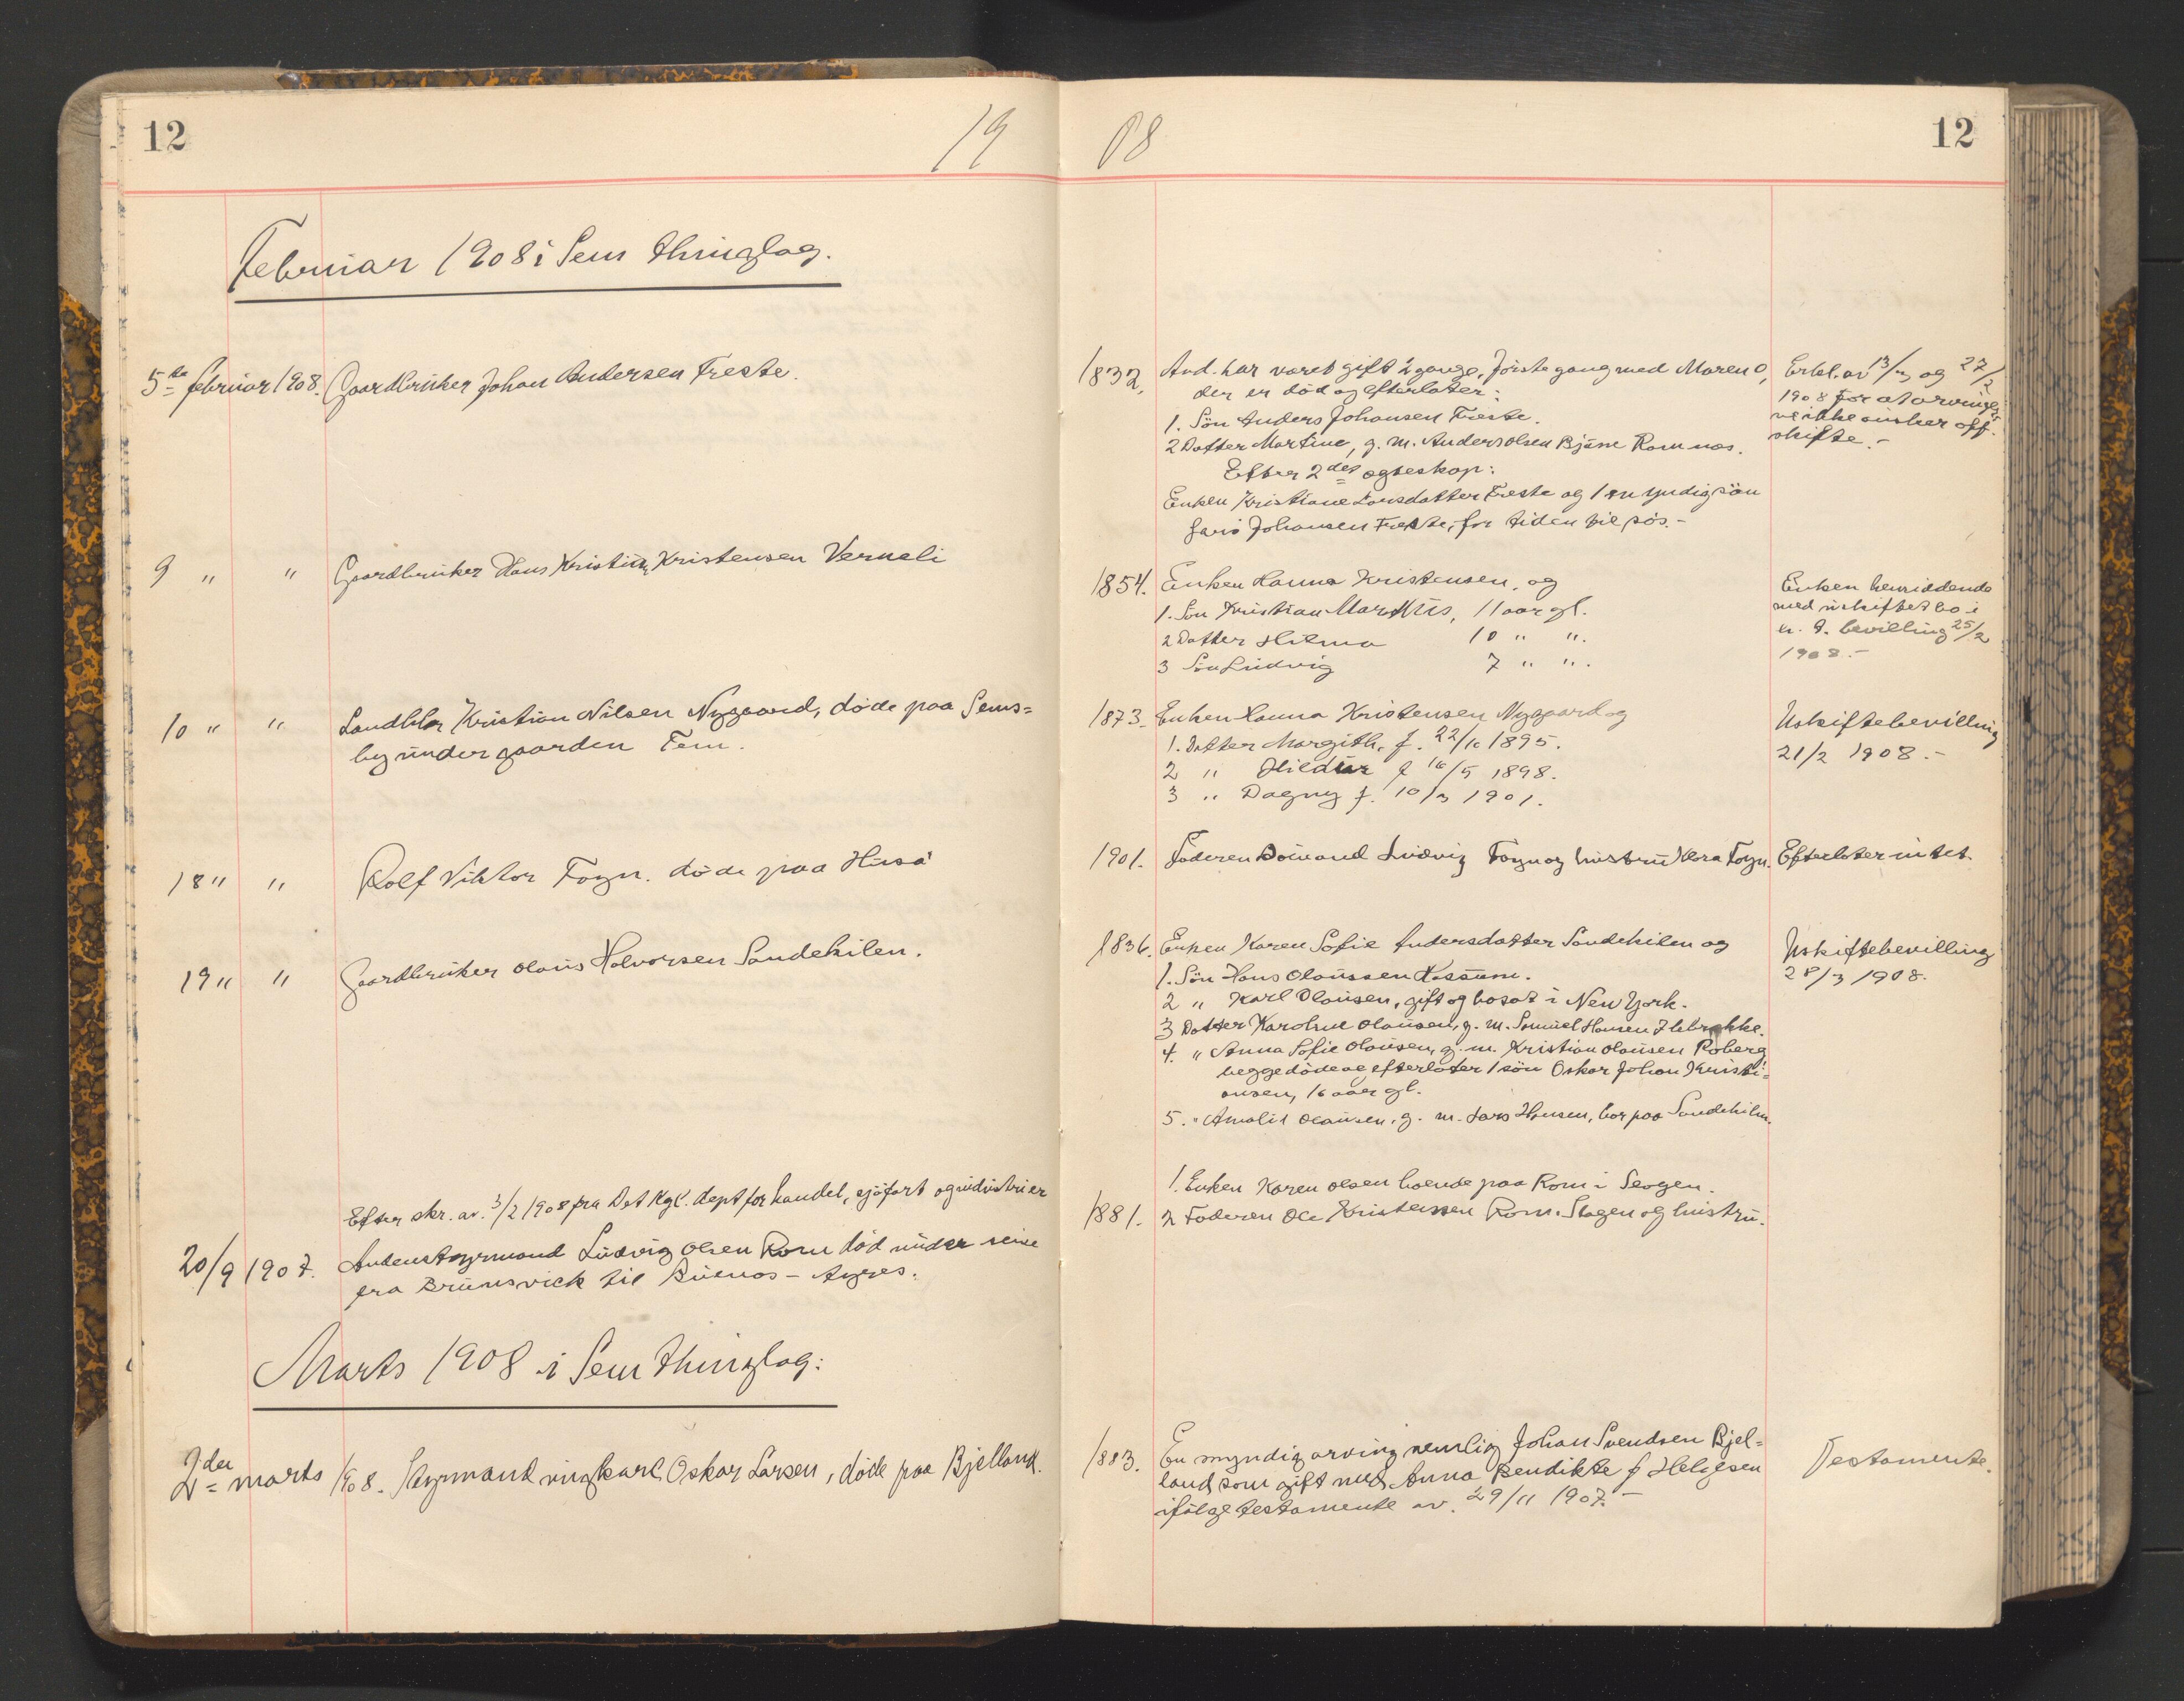 12
19
08
12
Februar 1908 i Sem thinglag.
5te februar 1908. Gaardbruker Johan Andersen Freste.
1832. Avd. har været gift 2 gange, første gang med Maren O,
der er død og efterlater:
1. Søn Anders Johansen Freste.
2 Datter Martine, g. m. Anders Olsen Romnæs.
Efter 2det egteskap:
Enken Kristiane Larsdatter Freste og 1 myndig søn
Johansen Freste, for tiden til sjøs.-
Erkl. av 13/2 og 27/2
1908 for at arvinger
ne ikke ønsker off.
skifte.-
9 " " Gaardbruker Hans Kristian Kristensen Verneli
1854. Enken Hanna Kristensen, og
1. Søn Kristian Markus, 11 aar gl.
2 Datter Hilma 10 " ".
3 Søn Ludvig 7 " ".
Enken hensiddende
med uskiftet bo i
h. t. bevilling 25/2
1908.-
10 " " Landhdlr Kristian Nilsen Nygaard, døde paa Sems=
by under gaarden Fem.
1873. Enken Hanna Kristensen Nygaard og
1. Datter Margith, f. 22/10 1895.
2 " Hildur f 16/5 1898.
3 " Dagny f. 10/3 1901.
Uskiftebevilling
21/2 1908.-
18 " " Rolf Viktor Fogn. døde paa Husø
1901. Faderen Ludvig Fogn og hustru Klara Fogn.
Efterlater intet.
19 " " Gaardbruker Olaus Halvorsen Sandekilen.
1836. Enken Karen Sofie Andersdatter Sandekilen og
1. Søn Hans Olaussen
2 " Karl Olausen, gift og bosat i New York.
3 Datter Karoline Olausen, g. m. Samuel Hansen
4. " Anna Sofie Olausen, g. m. Kristian Olausen Roberg
begge døde og efterlater 1 søn Oskar Johan Kristi=
ansen, 16 aar gl.
5. " Amalie Olausen, g. m. Lars Hansen, bor paa Sandekilen.
Uskiftebevilling
28/3 1908.
Efter skr. av. 3/2 1908 fra Det Kgl. dept for handel, sjøfart og industri er
20/9 1907. Andenstyrmand Ludvig Olsen Rom død under reise
fra Brunsvick til Buenos-Ayres.
1. Enken Karen Olsen boende paa Rom i Slagen.
1881. 2 Faderen Ole Kristensen Rom. Slagen og hustru.
Marts 1908 i Sem thinglag:
2den marts 1908. Styrmand ungkarl Oskar Larsen, døde paa Bjelland.
1883. En myndig arving nemlig Johan Svendsen Bjel=
land som gift med Anna Bendikte f Helgesen
ifølge testamente av. 29/11 1907.-
Testamente.